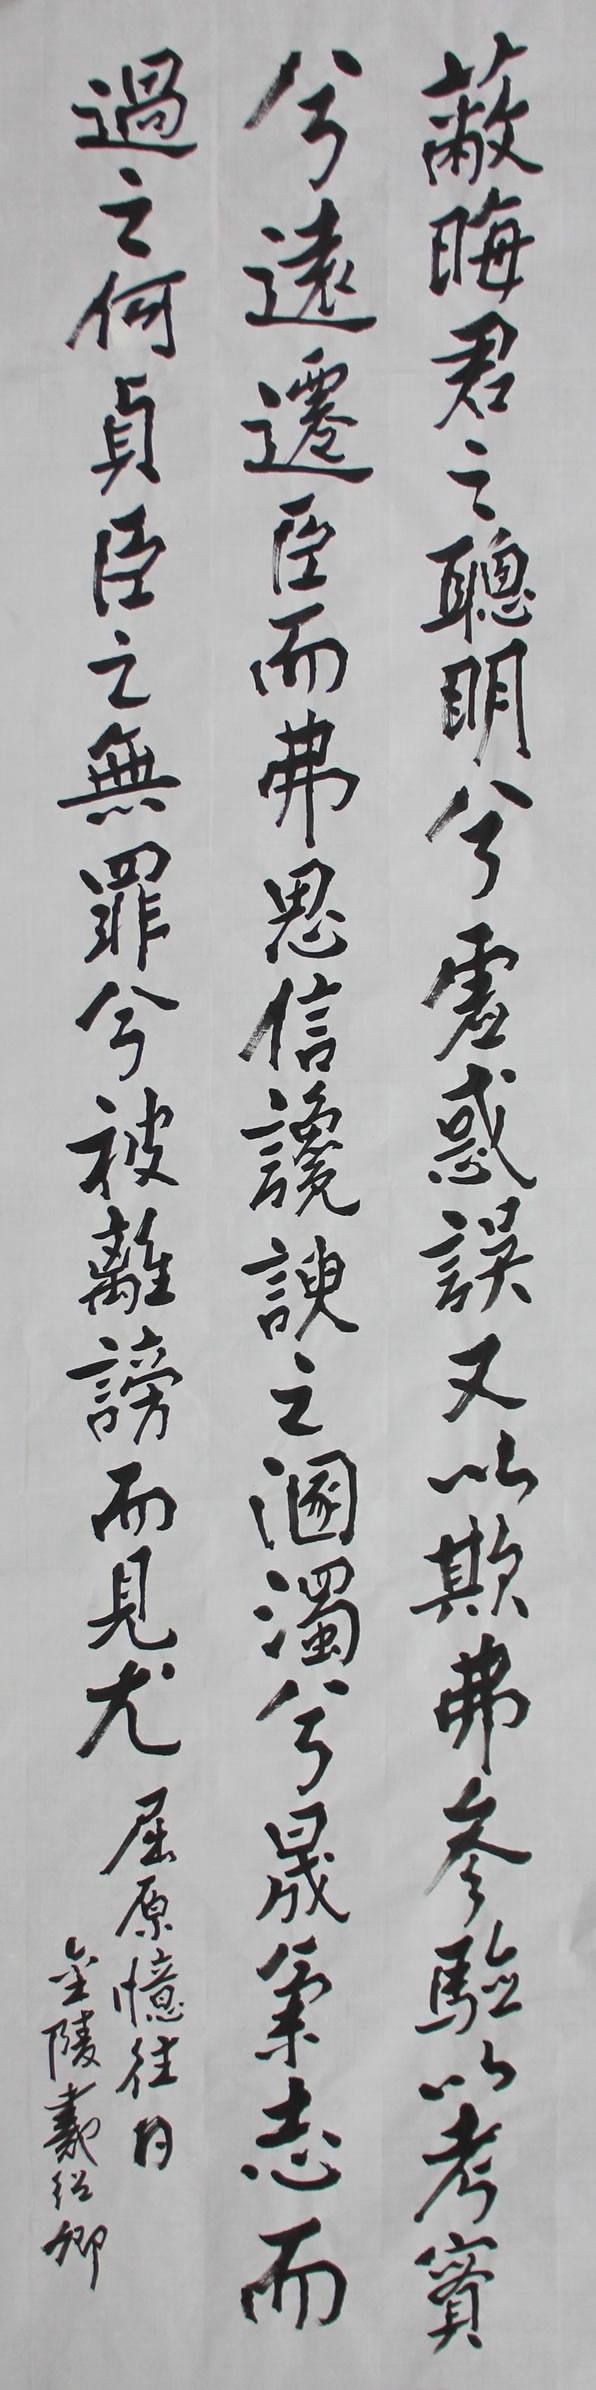 蔽晦君之聰明兮虛惑誤又以欺弗參驗以考實
兮遠遷臣而弗思信讒諛之溷濁兮晟氣志而
過之何貞臣之無罪兮被離謗而見尤
屈原憶往日
金陵戴紹卿